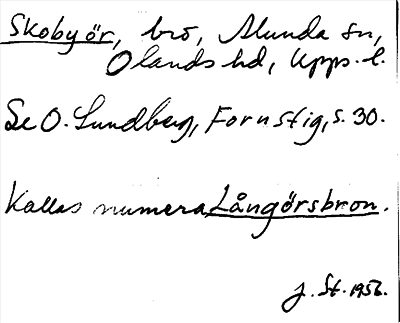 Skobyör, bro, Alunda sn,
Olands hd, Upps. l.
Se O. Lundberg, Fornstig, s. 30.
Kallas numera Långörsbron.
J. St. 1956.